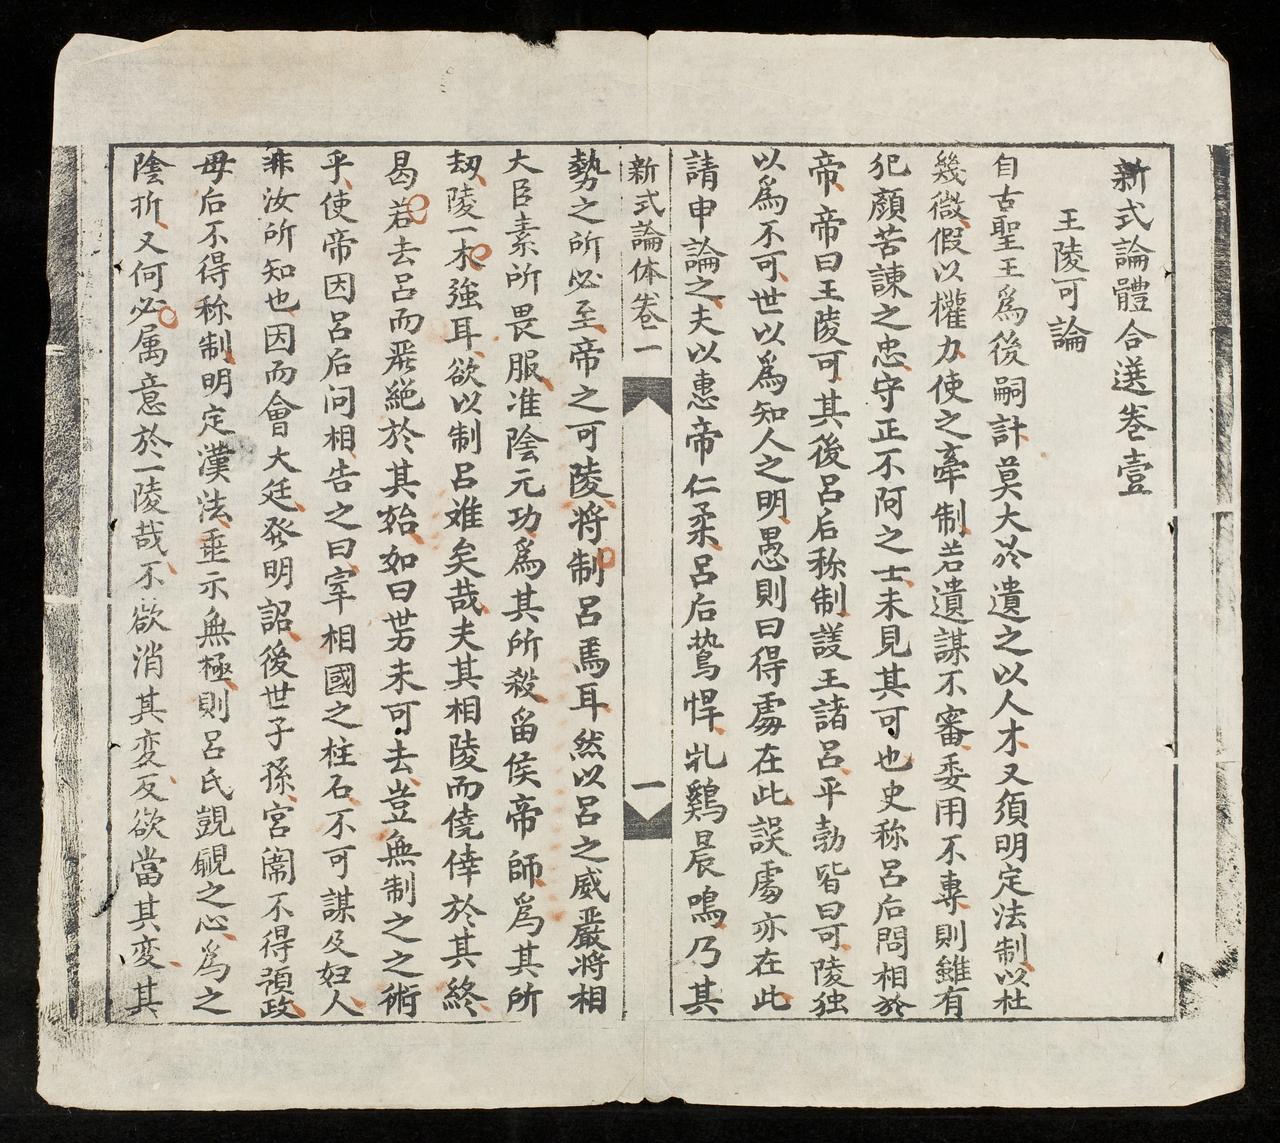 新式論體合選卷壹
王陵可論
自古聖王爲後嗣計莫大於遺之以人才又須明定法制以杜
幾微假以權力使之牽制若遺謀不審委用不專則雖有
犯顏苦諫之忠守正不阿之士未見其可也史称呂后問相於
帝帝曰王陵可其後呂后称制議王諸呂平勃皆曰可陵独
以爲不可世以爲知人之明愚則曰得處在此誤處亦在此
請申論之夫以惠帝仁柔呂后鷙悍牝鷄晨鳴乃其
新式論体卷一
一
勢之所必至帝之可陵將制呂焉耳然以呂之威嚴將相
大臣素所畏服淮陰元功爲其所殺留侯帝師爲其所
刼陵一木強耳欲以制呂难矣哉夫其相陵而僥倖於其終
曷若去呂而嚴絕於其始如曰势未可去豈無制之之術
乎使帝因呂后问相告之曰宰相國之柱石不可謀及妇人
非汝所知也因而會大廷發明詔後世子孫宮闈不得預政
母后不得称制明定漢法垂示無極則呂氏覬覦之心爲之
陰折又何必属意於一陵哉不欲消其変反欲當其変其